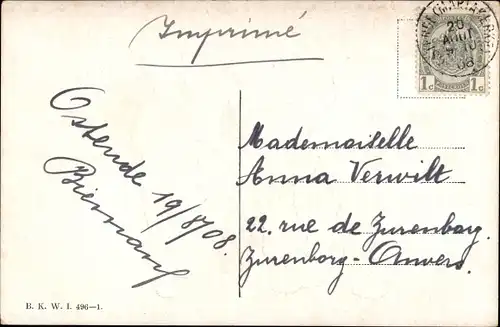 Imprimé
20
AOUT
08
1c 1c
Ostende 19/8/08.
Mademoiselle
Anna Verwilt
22. rue de Zurenborg.
Zurenborg-Anvers.
B. K. W. I. 496—1.